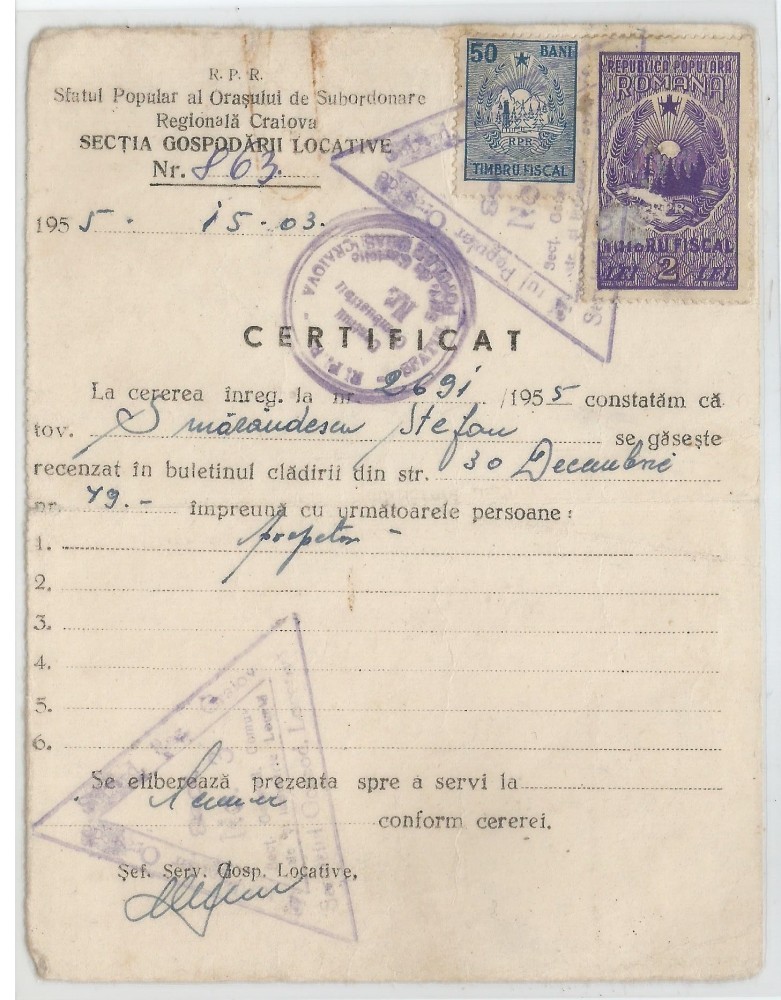 R. P. R.
Sfatul Popular al Orașului de Subordonare
Regională Craiova
SECȚIA GOSPODĂRII LOCATIVE
Nr. 863.
1955. 15-03.
50 BANI
RPR
TIMBRU FISCAL
REPUBLICA POPULARĂ
ROMÂNĂ
RPR
FISCAL
LEI 2 LEI
CRAIOVA
CERTIFICAT
La cererea înreg. la nr. 2691 /1955 constatăm că
tov. Smărăndescu Ștefan se găsește
recenzat în buletinul clădirii din str. 30 Decembrie
nr. 79.- împreună cu următoarele persoane :
1.
2.
3.
4.
5.
6.
Se eliberează prezenta spre a servi la
conform cererei.
Șef. Serv. Gosp. Locative,